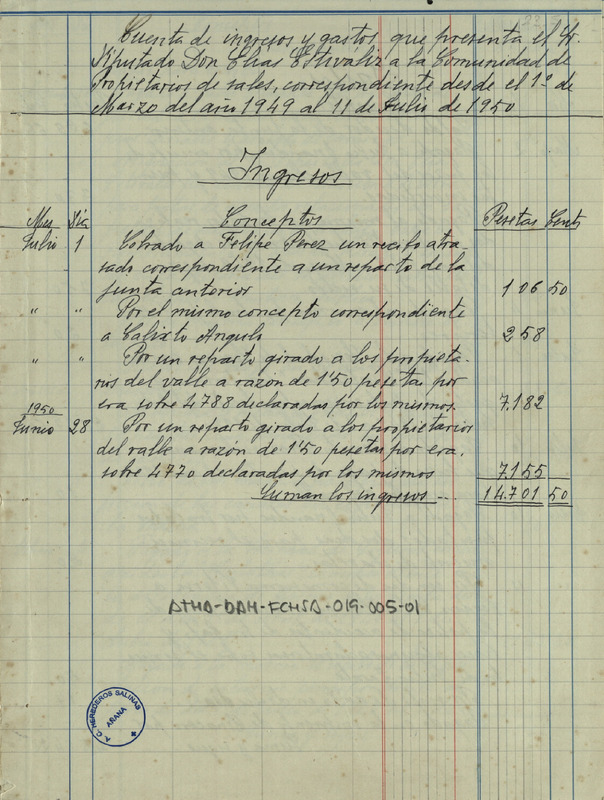 Cuenta de ingresos y gastos que presenta el Sr.
Diputado Don Elias Estivaliz a la Comunidad de
Propietarios de sales, correspondiente desde el 1º de
Marzo del año 1949 al 11 de Julio de 1950
Ingresos
Mes Día Conceptos Pesetas Cents
Julio 1 Cobrado a Felipe Perez un recibo atra-
sado correspondiente a un reparto de la
junta anterior 106 50
" " Por el mismo concepto correspondiente
a Calixto Angulo 258
" " Por un reparto girado a los propieta-
rios del valle a razón de 1'50 pesetas por
era sobre 4788 declaradas por los mismos. 7.182
1950
Junio 28 Por un reparto girado a los propietarios
del valle a razón de 1'50 pesetas por era.
sobre 4770 declaradas por los mismos 7.155
Suman los ingresos -- 14.701 50
ATHA-DAH-FCHSA-019-005-01
A. C. HEREDEROS SALINAS
ARANA